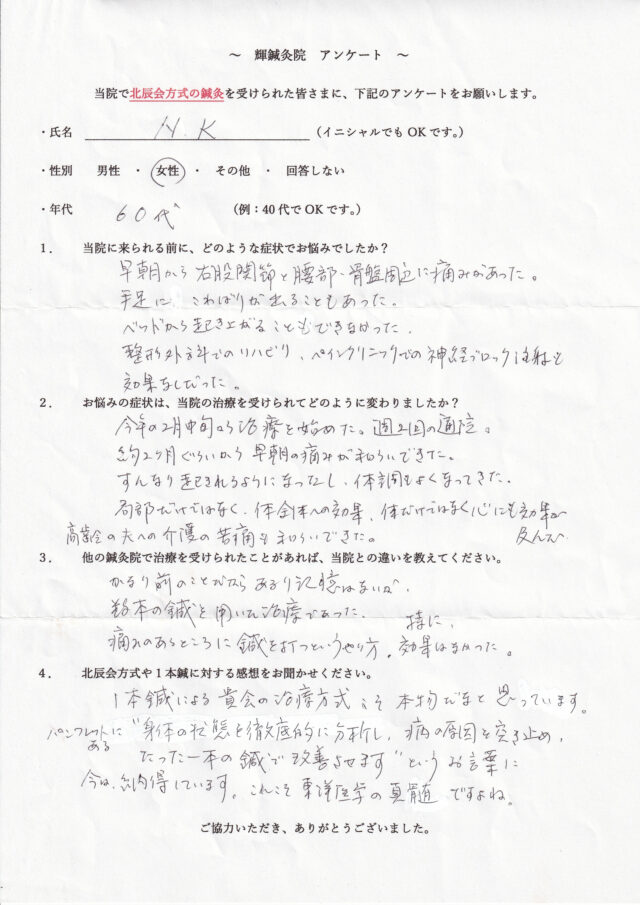 ～ 輝鍼灸院 アンケート ～
当院で北辰会方式の鍼灸を受けられた皆さまに、下記のアンケートをお願いします。
・氏名 N.K （イニシャルでも OK です。）
・性別 男性 ・ 女性 ・ その他 ・ 回答しない
・年代 60代 （例：40代でOKです。）
1． 当院に来られる前に、どのような症状でお悩みでしたか？
早朝から右股関節と腰部・骨盤周辺に痛みがあった。
手足に こわばりが出ることもあった。
ベッドから起き上がることもできなかった。
整形外科でのリハビリ、ペインクリニックでの神経ブロック注射も
効果なしだった。
2． お悩みの症状は、当院の治療を受けられてどのように変わりましたか？
今年の2月中旬から治療を始めた。週2回の通院。
約2ヶ月ぐらいから早朝の痛みが和らいできた。
すんなり起きれるようになったし、体調もよくなってきた。
局部だけではなく、体全体への効果、体だけではなく心にも効果が
及んで
高齢の夫への介護の苦痛も和らいできた。
3． 他の鍼灸院で治療を受けられたことがあれば、当院との違いを教えてください。
かなり前のことだからあまり記憶はないが、
数本の鍼を用いた治療であった。
痛みのあるところに鍼を打つというやり方。特に、効果はなかった。
4． 北辰会方式や1本鍼に対する感想をお聞かせください。
1本鍼による貴会の治療方式こそ本物だなと思っています。
パンフレットにある
"身体の状態を徹底的に分析し、病の原因を突き止め、
たった一本の鍼で改善させます"というお言葉に
今は、納得しています。これこそ東洋医学の真髄ですよね。
ご協力いただき、ありがとうございました。